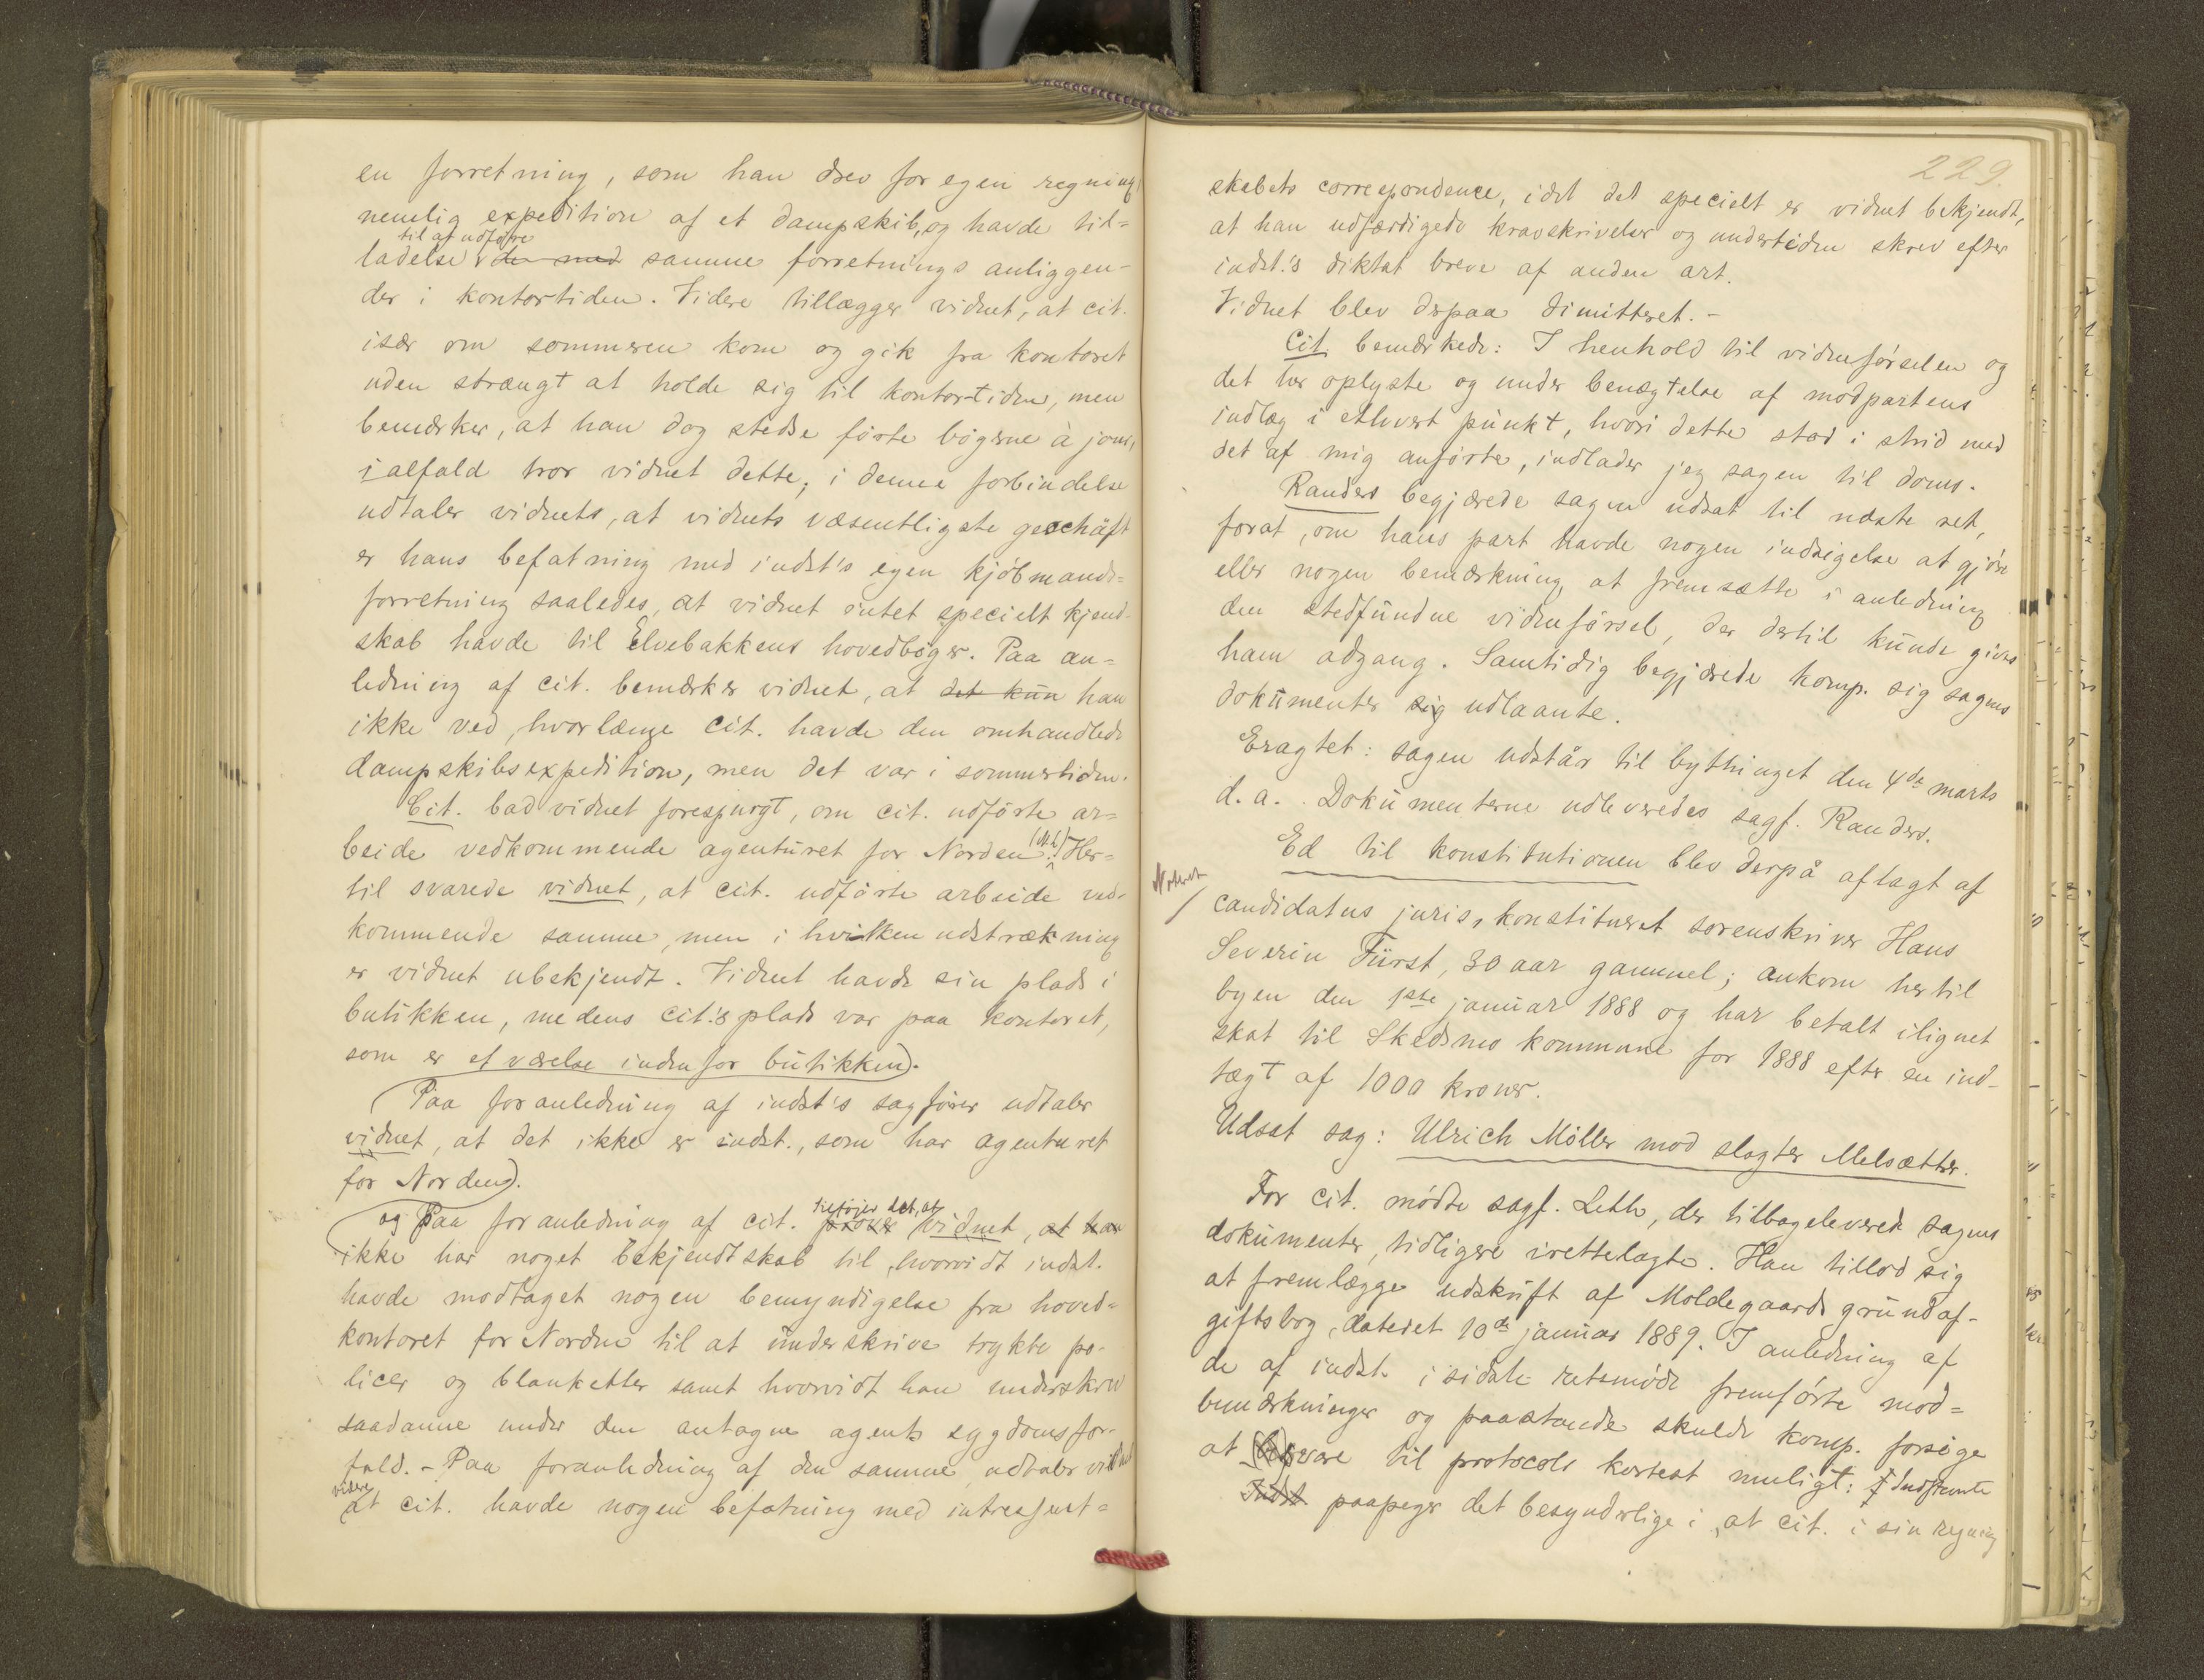 en forretning, som han drev for egen regning,
nemlig expedition af et dampskib, og havde til-
til at udføre
ladelse der med samme forretnings anliggen-
der i kontortiden. Videre tillægger vidnet, at cit.
især om sommeren kom og gik fra kontoret
uden strængt at holde sig til kontortiden, men
bemærker, at han dog stedse førte bøgerne à jour,
ialfald tror vidnet dette; i denne forbindelse
udtaler vidnets, at vidnets væsentligste geschäft
er hans befatning med indst's egen kjøbmands-
forretning saaledes, at vidnet intet specielt kjend-
skab havde til Elvebakkens hovedbøger. Paa an-
ledning af cit. bemærker vidnet, at det kun han
ikke ved, hvorlænge cit. havde den omhandlede
dampskibsexpedition, men det var i sommertiden.
Cit. bad vidnet forespurgt, om cit. udførte ar-
beide vedkommende agenturet for Norden. Her-
til svarede vidnet, at cit. udførte arbeide ved-
kommende samme, men i hvilken udstrækning
er vidnet ubekjendt. Vidnet havde sin plads i
butikken, medens cit.'s plads var paa kontoret,
som er et værelse indenfor butikken).
(Paa foranledning af indst's sagfører udtaler
vidnet, at det ikke er indst., som har agenturet
for Norden).
tilføjer det, at
og Paa foranledning af cit. prover vidnet, at han
ikke har noget bekjendtskab til, hvorvidt indst.
havde modtaget nogen bemyndigelse fra hoved-
kontoret for Norden til at underskrive trykte po-
licer og blanketter samt hvorvidt han underskrev
saadanne under den antagne agents sygdomsfor-
fald. - Paa foranledning af den samme udtaler vidnet
videre
at cit. havde nogen befatning med intressent-
229.
skabets correspondence, idet det specielt er vidnet bekjendt,
at han udfærdigede kravskrivelser og undertiden skrev efter
indst.'s diktat breve af anden art.
Vidnet blev derpaa dimitteret. -
Cit. bemærkede: I henhold til vidneførselen og
det her oplyste og under benægtelse af modpartens
indlæg i ethvert punkt, hvori dette stod i strid med
det af mig anførte, indlader jeg sagen til doms.
Randers begjærede sagen udsat til næste ret,
forat, om hans part havde nogen indsigelse at gjøre
eller nogen bemærkning at fremsætte i anledning
den stedfundne vidneførsel, der dertil kunde gives
ham adgang. Samtidig begjærede komp. sig sagens
dokumenter sig udlaante.
Eragtet: sagen udstår til bythinget den 4de marts
d. a. Dokumenterne udleveredes sagf. Randers.
Ed til konstitutionen blev derpå aflagt af
Noteret
candidatus juris, konstitueret sorenskriver Hans
Severin Fürst, 30 aar gammel; ankom hertil
byen den 1ste januar 1888 og har betalt ilignet
skat til Skedsmo kommune for 1888 efter en ind-
tægt af 1000 kroner.
Udsat sag: Ulrich Møller mod slagter Melsætter.
For cit. mødte sagf. Leth, der tilbageleverede sagens
dokumenter, tidligere irettelagte. Han tillod sig
at fremlægge udskrift af Moldegaards grundaf-
giftsbog, dateret 10de januar 1889. I anledning af
de af indst. i sidste retsmøde fremførte mod-
bemærkninger og paastande skulde komp. forsøge
at svare til protocols kortest muligt: Indstevnte
Indst paapeger det besynderlige i, at cit. i sin regning